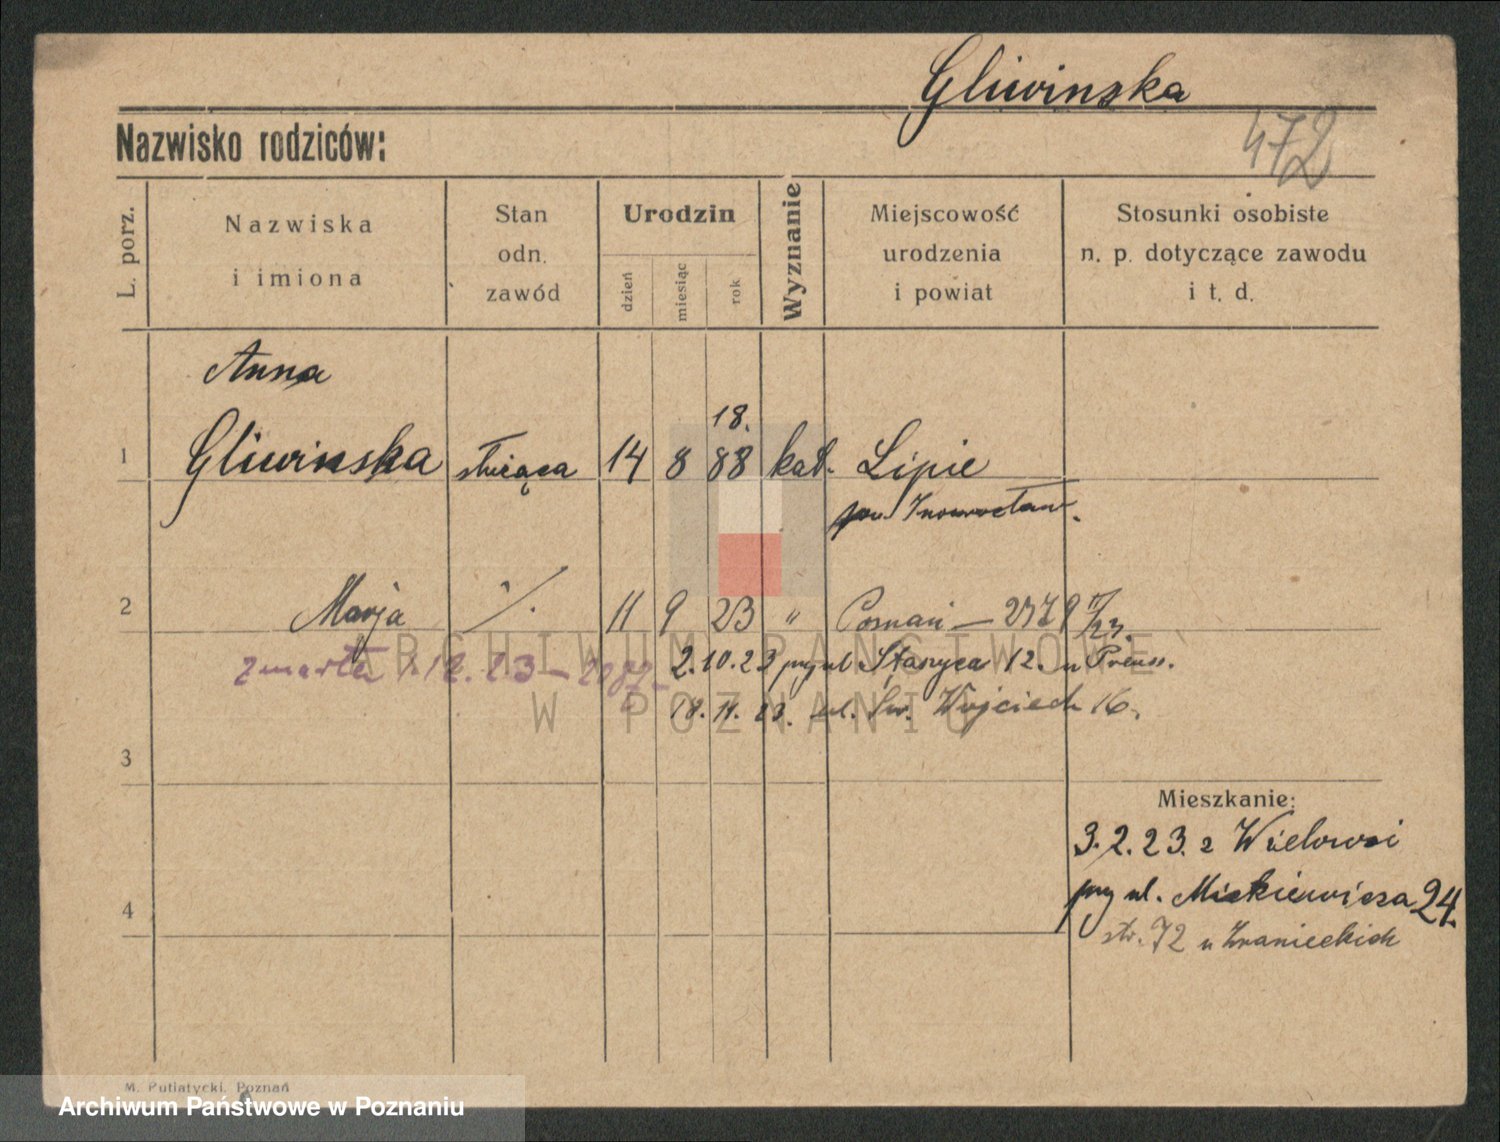 Gliwinska
472
Nazwisko rodziców:
L. porz.
Nazwiska
i imiona
Stan
odn.
zawód
Urodzin
dzień
miesiąc
rok
Wyznanie
Miejscowość
urodzenia
i powiat
Stosunki osobiste
n. p. dotyczące zawodu
i t. d.
Anna
18.
1 Gliwinska służąca 14 8 88 kat. Lipie
pow Inowrocław.
2 Marja ·/. 11 9 23 " Poznań —
zmarła 12. 23 —
2.10.23 przy ul Stanyca 12. u Preuss.
18. 11. 23. ul. Św. Wojciech 16.
ARCHIWUM PAŃSTWOWE
W POZNANIU
3
Mieszkanie:
3.2.23. z
przy ul. Mickiewicza 24.
4
str. 72 u
M. Putiatycki, Poznań
Archiwum Państwowe w Poznaniu